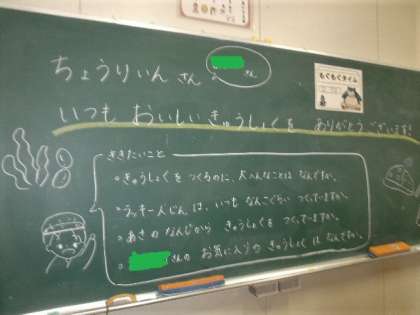 もぐもぐタイム
ちょうりいん さん
さん
いつも おいしい きゅうしょくを ありがとうございます!
ききたいこと
・きゅうしょくを つくるのに、大へんなことは なんですか。
・ラッキー人じんは、いつも なんこぐらい つくっていますか。
・あさの なんじから きゅうしょくを つくっていますか。
・さんの お気に入りの きゅうしょくは なんですか。